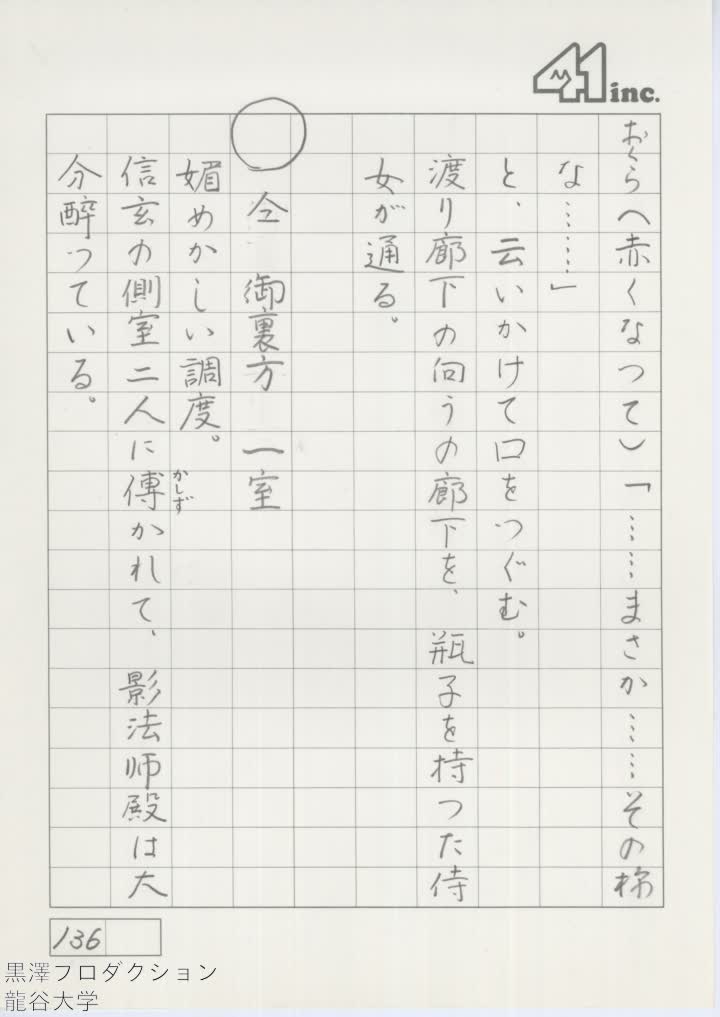 41 inc.
おくら(赤くなつて)「……まさか……その様
な……」
と、云いかけて口をつぐむ。
渡り廊下の向うの廊下を、瓶子を持つた侍
女が通る。
仝 御裏方 一室
媚めかしい調度。
信玄の側室二人に傅かれて、影法師殿は大
かしず
分酔つている。
136
黒澤フロダクション
龍谷大学